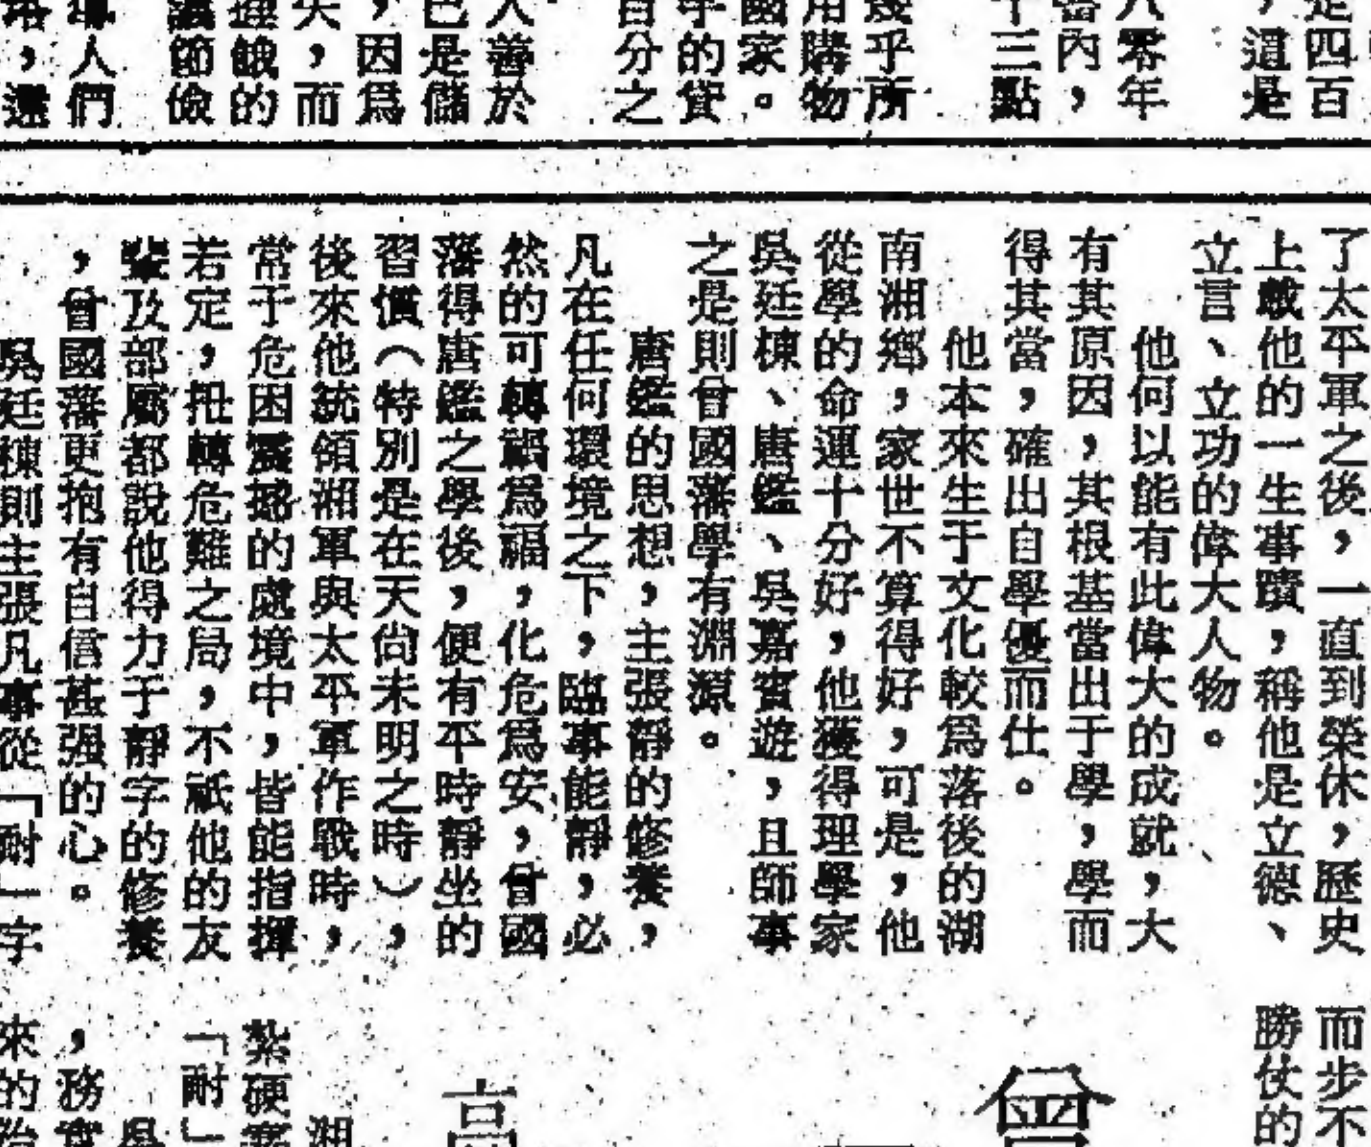 是四百
，這是
八零年
內，
十三點
幾乎所
用購物
國家。
乎的貨
百分之
人善於
已是儲
，因爲
失，而
餓的
節儉
人們
，還
了太平軍之後，一直到榮休，歷史
上載他的一生事蹟，稱他是立德、
立言、立功的偉大人物。
他何以能有此偉大的成就，大
有其原因，其根基當出于學，學而
得其當，確出自學優而仕。
他本來生于文化較爲落後的湖
南湘鄉，家世不算得好，可是，他
從學的命運十分好，他獲得理學家
吳廷棟、唐鑑、吳嘉賓遊，且師事
之是則曾國藩學有淵源。
唐鑑的思想，主張靜的修養，
凡在任何環境之下，臨事能靜，必
然的可轉禍爲福，化危爲安，曾國
藩得唐鑑之學後，便有平時靜坐的
習慣（特別是在天尙未明之時），
後來他統領湘軍與太平軍作戰時，
常于危困震撼的處境中，皆能指揮
若定，扭轉危難之局，不祇他的友
輩及部屬都說他得力于靜字的修養
，曾國藩更抱有自信甚强的心。
吳廷棟則主張凡事從「耐」字
而步不
勝仗的
曾
湘
紮硬寨
「耐」
吳
，務實
來的